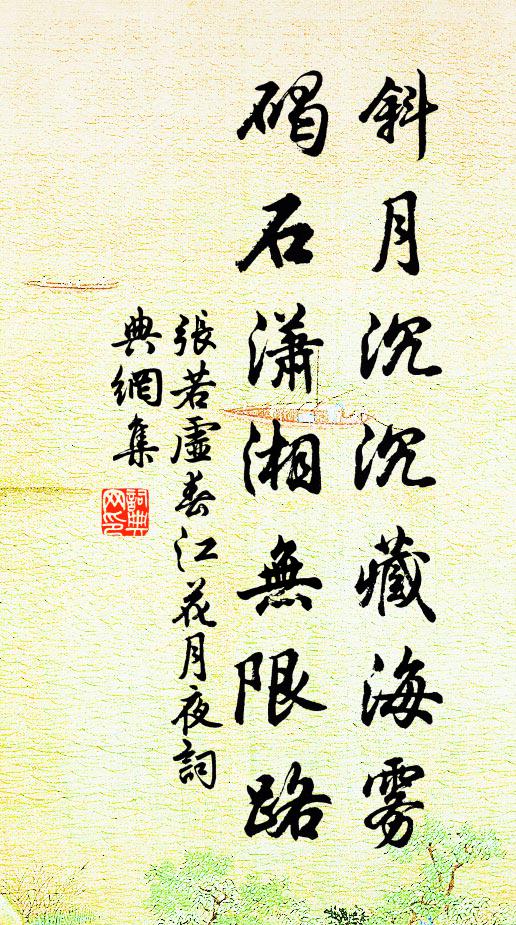 斜月沉沉藏海雾
碣石瀟湘無限路
張若虛春江花月夜詞
典網集
詞典网印